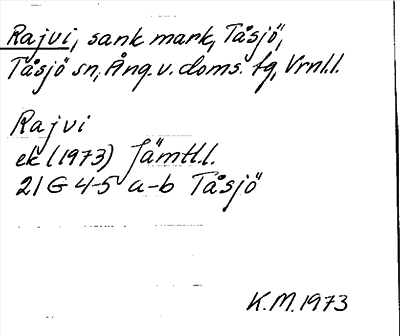 Rajvi, sank mark, Tåsjö,
Tåsjö sn, Ång. v. doms. fg, Vrnl.l.
Rajvi
ek (1973) Jämtl.l.
21 G 4-5 a-b Tåsjö
K.M. 1973